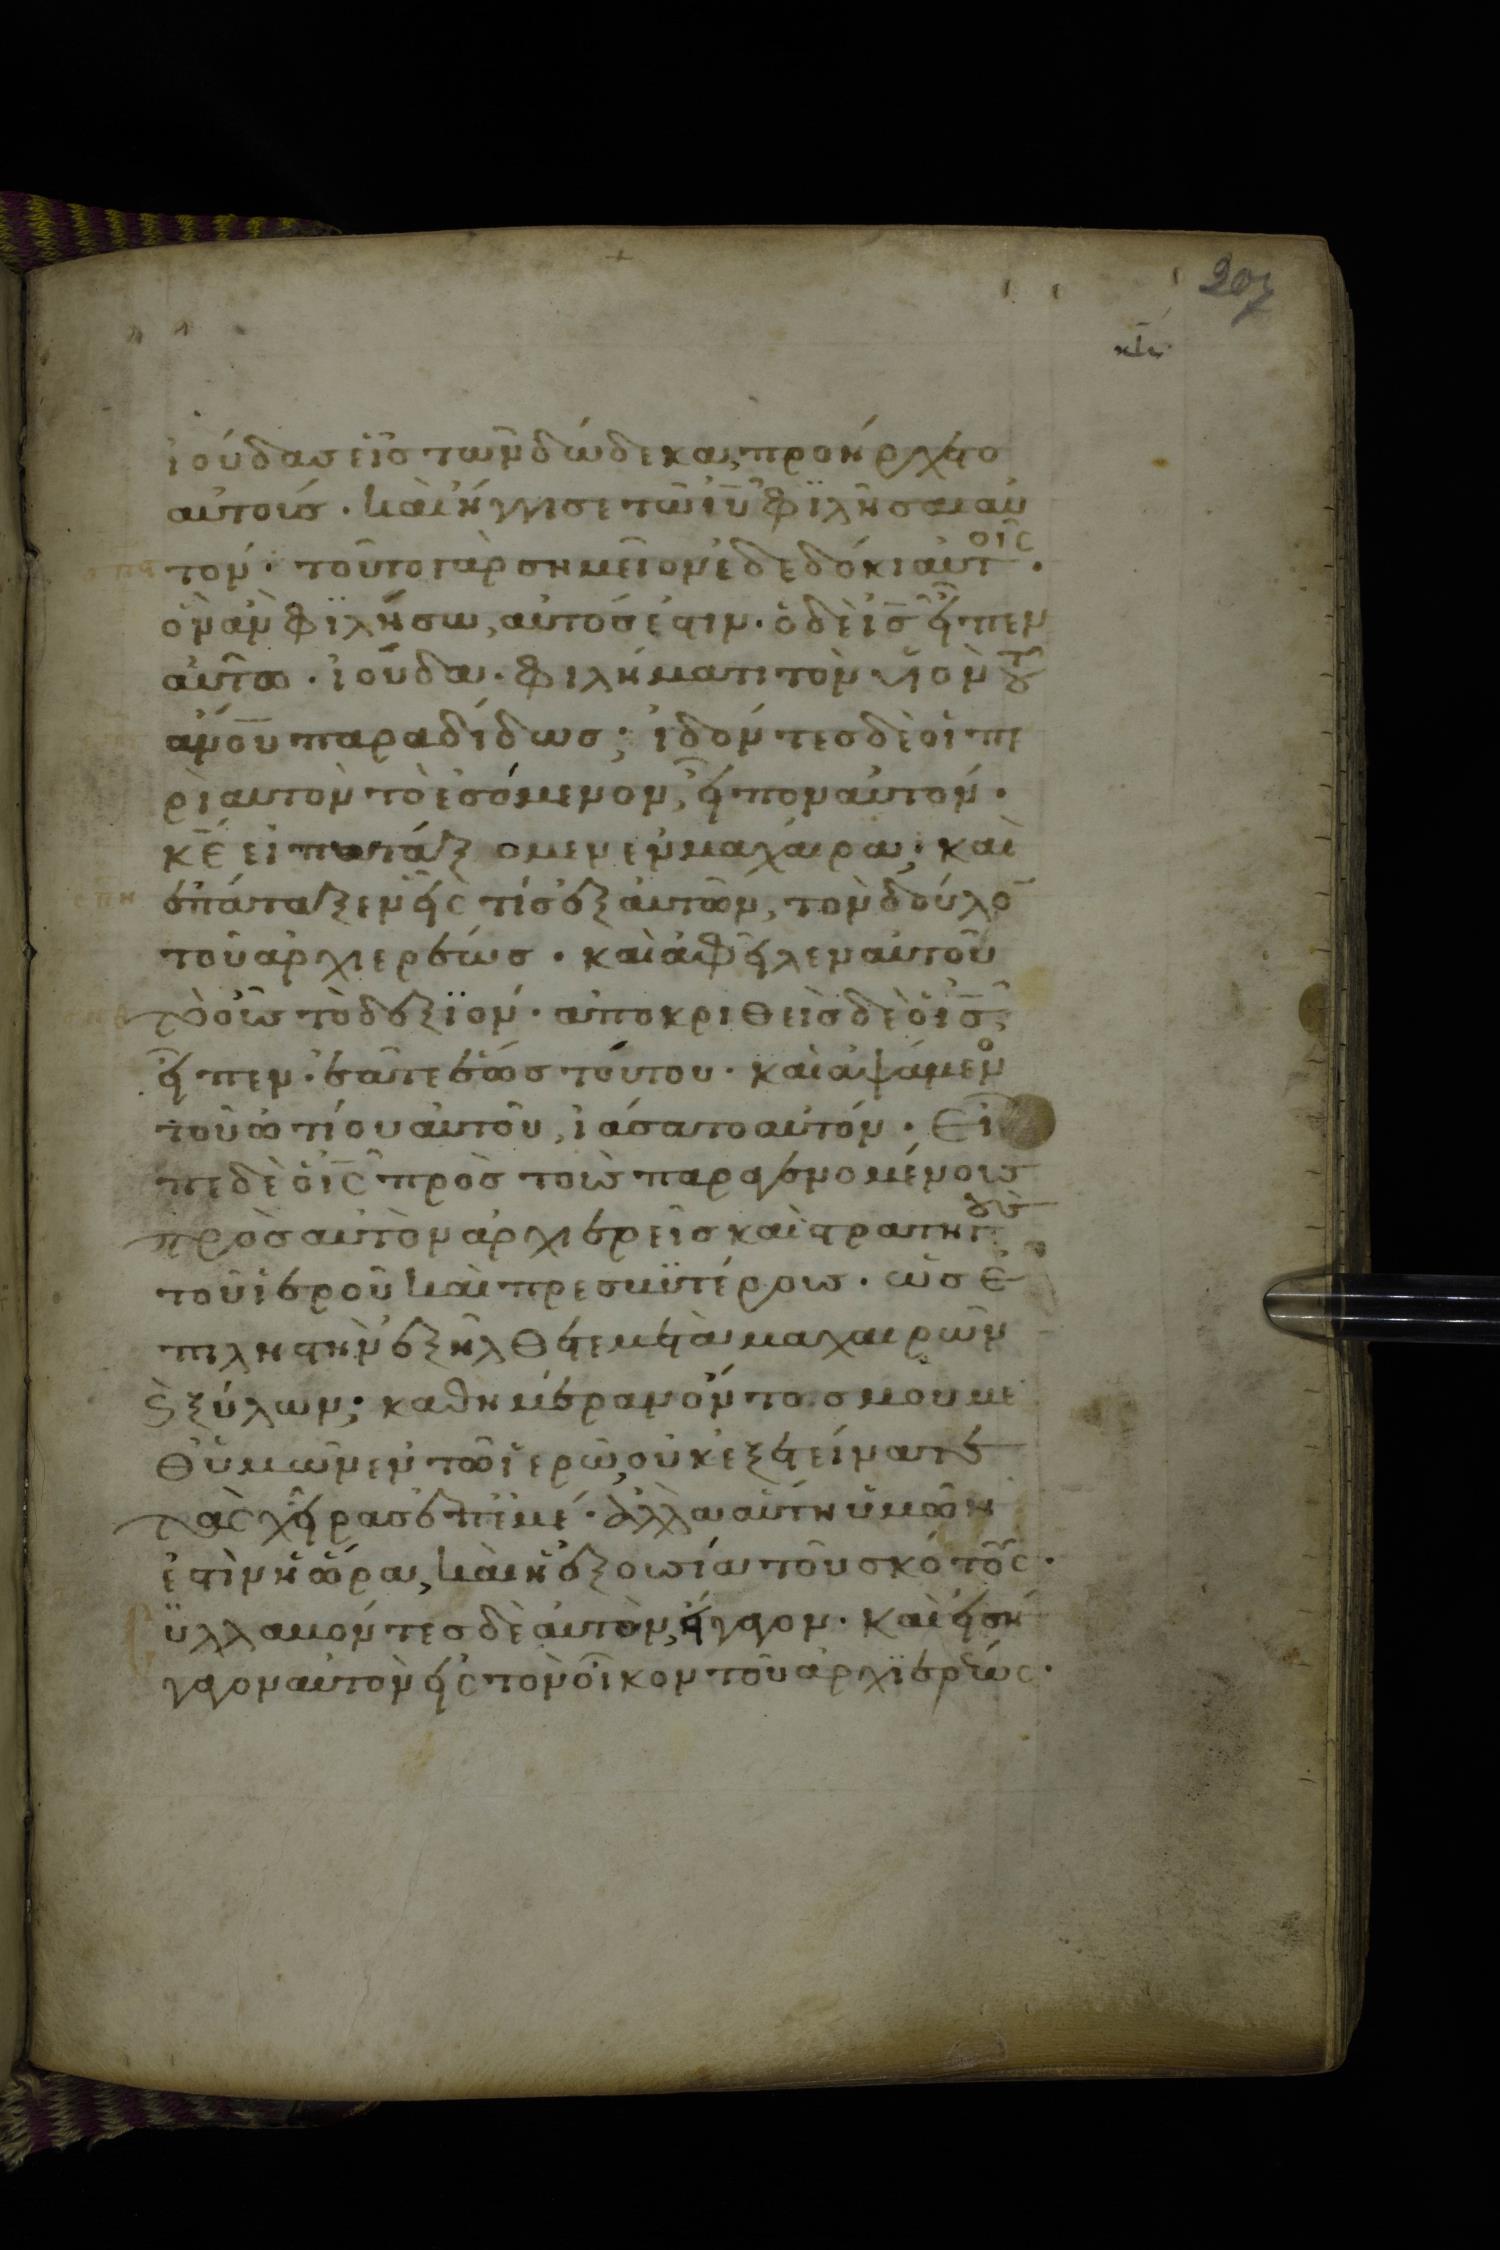 207
ἰούδας εἷς τῶν δώδεκα, προήρχετο
αὐτοῖς · καὶ ἤγγισε τῶ ἰῡ φϊλῆσαι αὐ
τόν · τοῦτο γὰρ σημεῖον ἐδεδόκι αὐτοῖς ·
ὃν ἂν φϊλήσω, αὐτός ἐστιν · ὁ δὲ ἰς̄ εἶπεν
αὐτῶ · ἰούδα · φιλήματι τὸν υἱὸν τοῦ
ἀνο̄υ παραδίδως ; ἰδόντες δὲ οἱ πε
ρὶ αυτὸν τὸ ἐσόμενον, εἶπον αὐτόν ·
κε̄ εἰ πατάξομεν ἐν μαχαίρα ; καὶ
ἐπάταξεν εἷς τίς ἐξ αὐτῶν, τὸν δούλο̄
τοῦ ἀρχιερέως · καὶ ἀφεῖλεν αὐτοῦ
τὸ οὖς τὸ δεξϊόν · ἀποκριθεὶς δὲ ὁ ἰς̄
εἶπεν · ἐᾶτε ἕως τούτου · καὶ ἁψάμενο
τοῦ ὠτίου αὐτοῦ, ἰάσατο αὐτόν · Εἶ
πε δὲ ὁ ἰς̄ πρὸς τοὺς παραγενομένους
πρὸς αὐτὸν ἀρχιερεῖς καὶ στρατηγοὺς
τοῦ ἱεροῦ καὶ πρεσβϋτέρους · ὡς ἐ
πι ληστὴν ἐξήλθετε μετὰ μαχαιρῶν
ϗ ξύλων ; καθημέραν ὄντος μου με
θ᾽ ὑμῶν ἐν τῶ ἱερῶ, οὐκ ἐξετείνατε
τὰς χεῖρας ἐπ᾽ ἐμέ · ἀλλ᾽ αὕτη ὑμῶν
ἐστὶν ἡ ὥρα, καὶ ἡ ἐξουσία τοῦ σκότους ·
Σϋλλαβόντες δὲ αὐτὸν, ἤγαγον · καὶ εἰσή
γαγον αὐτὸν εἰς τὸν οἶκον τοῦ ἀρχϊερέως ·